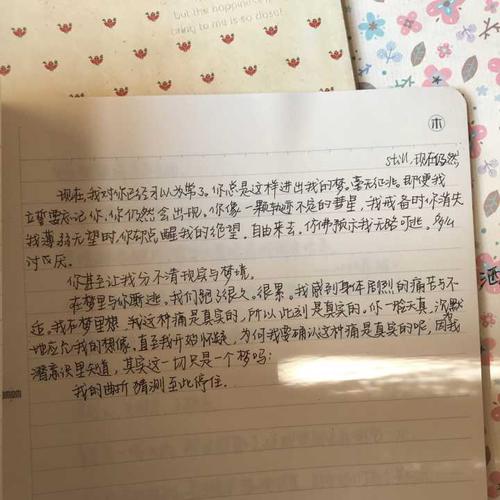 but the happiness
bring to me is so close!
木
still, 现在仍然,
现在,我对你已经习以为常了。你总是这样进出我的梦。毫无征兆。即便我
立誓要忘记你,你仍然会出现。你像一颗轨迹不定的彗星,我戒备时你消失
我薄弱无望时,你却点醒我的绝望。自由来去。仿佛预示我无路可逃。多么
讨厌。
你甚至让我分不清现实与梦境。
在梦里与你断逃。我们跑了很久。很累。我感到身体剧烈的痛苦与不
适。我在梦里想,我这种痛是真实的,所以此刻是真实的。你一脸天真,沉默
地应允我的想像。直至我开始怀疑,为何我要确认这种痛是真实的呢,因我
潜意识里知道,其实这一切只是一个梦吗?
我的曲折猜测至此停住。
mom
酒